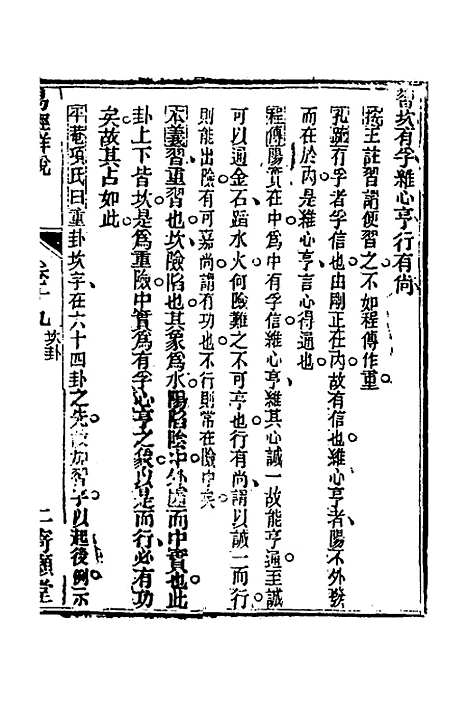 習坎有孚維心亨行有尚
王註習謂便習之不如程傳作重
孔疏有孚者孚信也由剛正在內故有信也維心亨者陽不外發
而在於內是維心亨言心得通也
程傳陽實在中為中有孚信維心亨維其心誠一故能亨通至誠
可以通金石蹈水火何險難之不可亨也行有尚謂以誠一而行
則能出險有可嘉尚謂有功也不行則常在險中矣
本義習重習也坎險陷也其象為水陽陷陰中外虛而中實也此
卦上下皆坎是為重險中實為有孚心亨之象以是而行必有功
矣故其占如此
平菴項氏曰重卦坎字在六十四卦之先故加習字以起後例示
易經詳說
卷十九
坎卦
二寄願堂